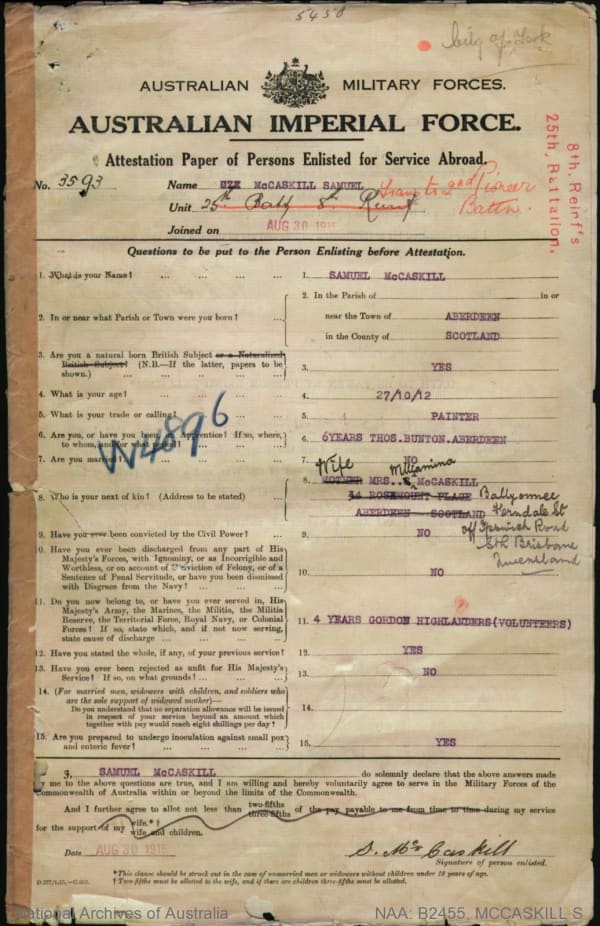 5458
City of York
AUSTRALIAN MILITARY FORCES.
AUSTRALIAN IMPERIAL FORCE.
Attestation Paper of Persons Enlisted for Service Abroad.
8th. Reinf's
25th, Battalion,
No. 3593 Name McCASKILL SAMUEL
Trans to 2nd Pioneer Battn.
Unit 25th Batt 8th Reinf
Joined on AUG 30 1915
Questions to be put to the Person Enlisting before Attestation.
1. What is your Name? ... ... ... ... 1. SAMUEL McCASKILL
2. In or near what Parish or Town were you born? ... 2. In the Parish of in or
near the Town of ABERDEEN
in the County of SCOTLAND
3. Are you a natural born British Subject or a Naturalized British Subject? (N.B.—If the latter, papers to be shown.) ... ... ... ... 3. YES
4. What is your age? ... ... ... ... 4. 27/10/12
5. What is your trade or calling? ... ... ... 5. PAINTER
6. Are you, or have you been, an Apprentice? If so, where, to whom, and for what period? ... 6. 6YEARS THOS.BUNTON.ABERDEEN
W4896
7. Are you married? ... ... ... 7. NO
8. Who is your next of kin? (Address to be stated) ... 8. Wife MOTHER MRS. Williamina McCASKILL
14 ROSEMOUNT PLACE
ABERDEEN SCOTLAND
Ferndale St
off Ipswich Road
Sth Brisbane
Queensland
9. Have you ever been convicted by the Civil Power? ... 9. NO
0. Have you ever been discharged from any part of His Majesty's Forces, with Ignominy, or as Incorrigible and Worthless, or on account of Conviction of Felony, or of a Sentence of Penal Servitude, or have you been dismissed with Disgrace from the Navy? ... ... 10. NO
11. Do you now belong to, or have you ever served in, His Majesty's Army, the Marines, the Militia, the Militia Reserve, the Territorial Force, Royal Navy, or Colonial Forces? If so, state which, and if not now serving, state cause of discharge ... ... ... 11. 4 YEARS GORDON HIGHLANDERS(VOLUNTEERS)
12. Have you stated the whole, if any, of your previous service? 12. YES
13. Have you ever been rejected as unfit for His Majesty's Service? If so, on what grounds? ... ... 13. NO
14. (For married men, widowers with children, and soldiers who are the sole support of widowed mother)—
Do you understand that no separation allowance will be issued in respect of your service beyond an amount which together with pay would reach eight shillings per day? 14.
15. Are you prepared to undergo inoculation against small pox and enteric fever? ... ... ... ... 15. YES
I, SAMUEL McCASKILL do solemnly declare that the above answers made
y me to the above questions are true, and I am willing and hereby voluntarily agree to serve in the Military Forces of the
Commonwealth of Australia within or beyond the limits of the Commonwealth.
And I further agree to allot not less than two-fifths three-fifths of the pay payable to me from time to time during my service
for the support of my wife.*† wife and children.
Date AUG 30 1915 S. McCaskill
Signature of person enlisted.
*This clause should be struck out in the case of unmarried men or widowers without children under 18 years of age.
† Two-fifths must be allotted to the wife, and if there are children three-fifths must be allotted.
National Archives of Australia NAA: B2455, MCCASKILL S